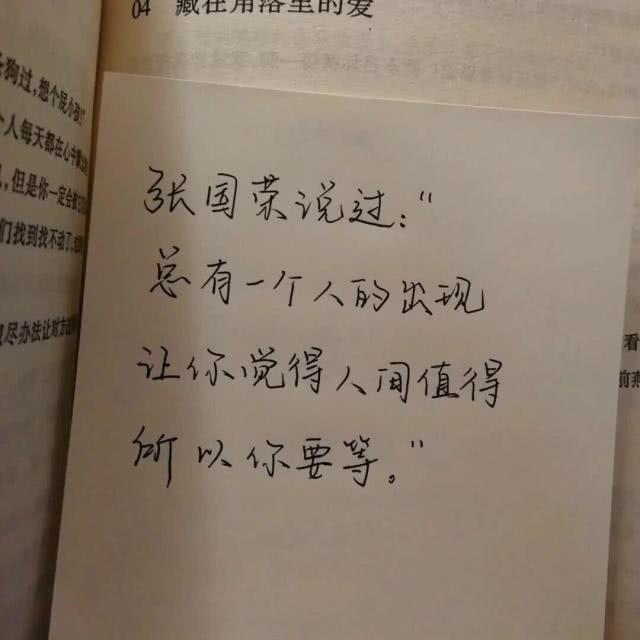 04 藏在角落里的爱
狗过,想个屁小孩
个人每天都在心中
,但是你一定会
们找到找不动了,
尽办法让对方
张国荣说过:“
总有一个人的出现
让你觉得人间值得
所以你要等。”
看
前